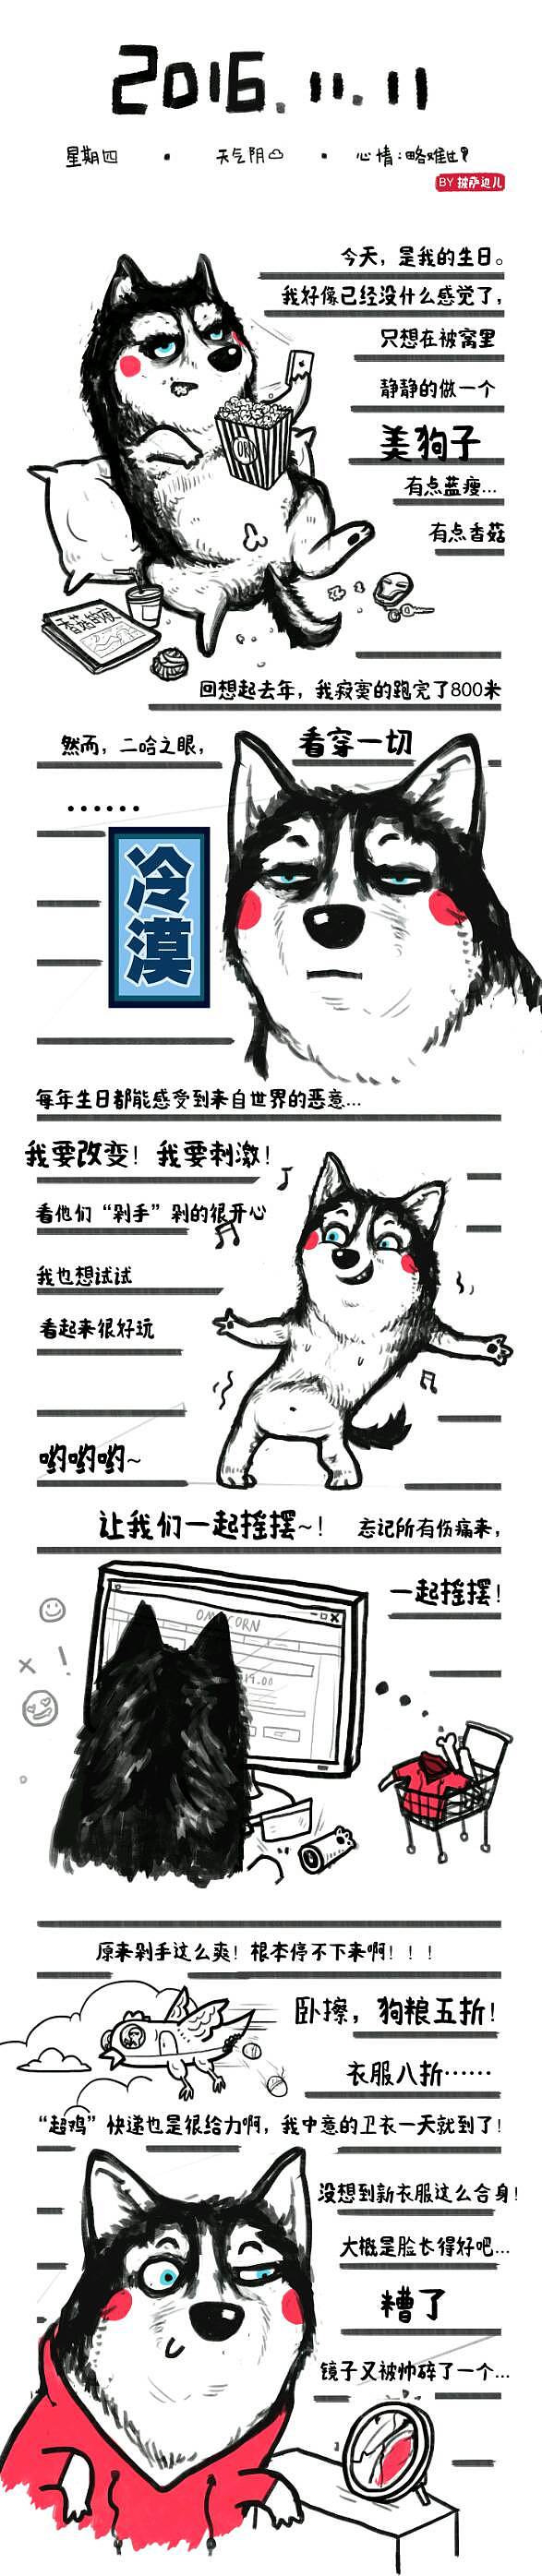 2016.11.11
星期四 · 天气阴 · 心情:略难过
BY 披萨边儿
今天，是我的生日。
我好像已经没什么感觉了，
只想在被窝里
静静的做一个
美狗子
有点蓝瘦...
有点香菇
回想起去年，我寂寞的跑完了800米
然而，二哈之眼，
看穿一切
······
冷漠
每年生日都能感受到来自世界的恶意...
我要改变！我要刺激！
看他们“剁手”剁的很开心
我也想试试
看起来很好玩
哟哟哟~
让我们一起摇摆~！ 忘记所有伤痛来，
一起摇摆！
原来剁手这么爽！根本停不下来啊！！！
卧擦，狗粮五折！
衣服八折……
“超鸡”快递也是很给力啊，我中意的卫衣一天就到了！
没想到新衣服这么合身！
大概是脸长得好吧...
糟了
镜子又被帅碎了一个...